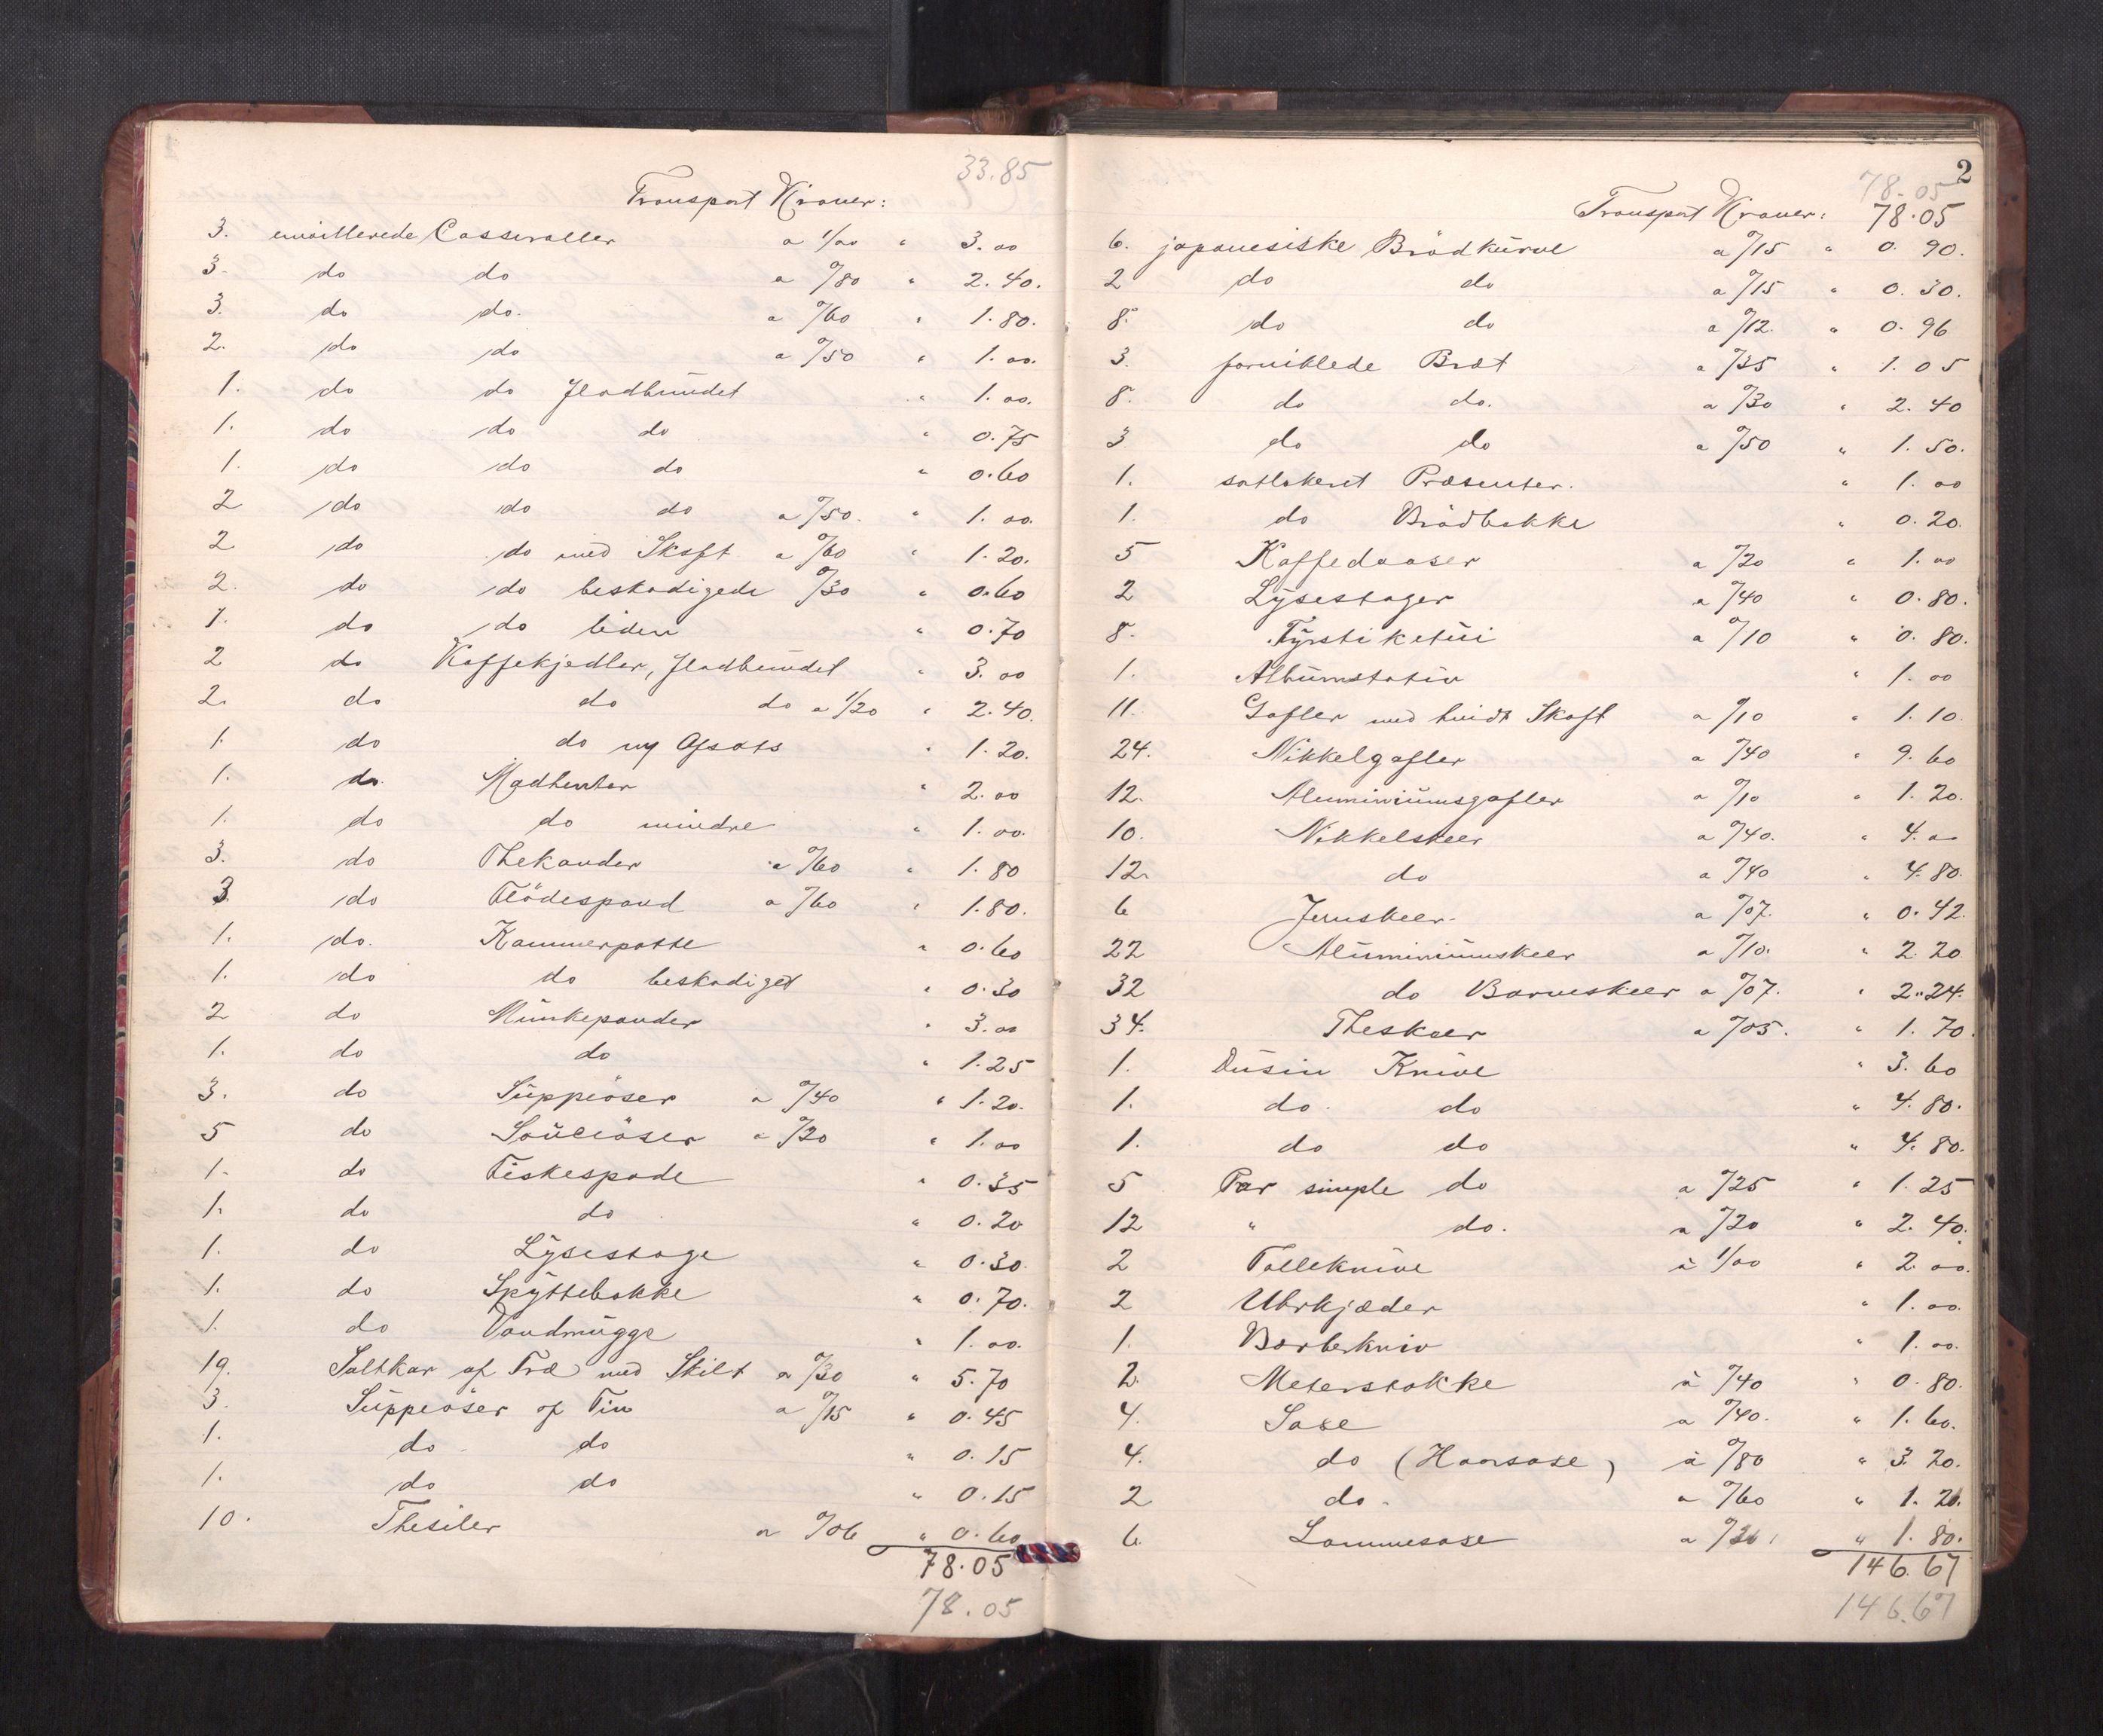 33.85
Transport Kroner:
3. emaillerede Casseroller a 1/00 " 3.00
3. do do a 0/80 " 2.40.
3. do do. a 0/60 " 1.80.
2. do do a 0/50 " 1.00.
1. do do fladbundet " 1.00.
1. do do do " 0.75
1. do do do " 0.60
2 do do do a 0/50. " 1.00.
2 do do med Skaft a 0/60 " 1.20.
2. do do beskadigede 0/30 " 0.60
1. do do liden " 0.70
2 do Kaffekjedler, fladbundet " 3.00
2. do do do a 1/20 " 2.40.
1. do do ny Afsats " 1.20.
1. do. Madhenter " 2.00
1. do do mindre " 1.00.
3. do Thekander a 0/60 " 1.80
3. do Flödespand a 0/60 " 1.80.
1. do. Kammerpotte " 0.60
1. do do beskadiget " 0.30
2 do Munkepander " 3.00
1. do do " 1.25
3. do Suppeöser a 0/40 " 1.20.
5 do Sauceöser a 0/20 " 1.00
1. do Fiskespade " 0.35
1. do do " 0.20
1. do Lysestage " 0.30.
1. do Spyttebakke " 0.70.
1. do Vandmugge " 1.00.
19. Saltkar af Træ med Skilt a 0/30 " 5.70
3. Suppeöser af Tin a 0/15 " 0.45
1. do do " 0.15
1. do do " 0.15
10. Thesiler a 0/06 " 0.60
78.05
78.05
2
78.05
Transport Kroner: 78.05
6. japanesiske Brödkurve a 0/15 " 0.90.
2 do do a 0/15 " 0.30.
8. do do a 0/12. " 0.96
3. forniklede Bræt a 0/35 " 1.05
8. do do. a 0/30 " 2.40
3 do do a 0/50 " 1.50.
1. sotlakeret Præsenter. " 1.00
1. do Brödbakke " 0.20.
5 Kaffedaaser a 0/20 " 1.00
2 Lysestager a 0/40 " 0.80.
8. Fyrstiketui a 0/10 " 0.80.
1. Albumstativ " 1.00
11. Gafler med hvidt Skaft a 0/10 " 1.10.
24. Nikkelgafler a 0/40 " 9.60
12. Aluminiumsgafler a 0/10 " 1.20.
10. Nikkelskeer a 0/40. " 4.00
12. do a 0/40 " 4.80.
6 Jernskeer. a 0/07. " 0.42.
22 Aluminiumskeer a 0/10. " 2.20
32 do Barneskeer a 0/07. " 2.24.
34. Theskeer a 0/05. " 1.70.
1. Dusin Knive " 3.60
1. do. do " 4.80.
1. do do " 4.80.
5 Par simple do a 0/25 " 1.25
12 " do. a 0/20 " 2.40.
2 Talleknive à 1/00 " 2.00.
2 Uhrkjæder " 1.00.
1. Barberkniv " 1.00.
2. Meterstokke à 0/40 " 0.80.
4. Saxe a 0/40. " 1.60.
4. do (Haarsaxe) à 0/80 " 3.20.
2 do. a 0/60 " 1.20.
6. Lommesaxe a 0/30. " 1.80.
146.67
146.67